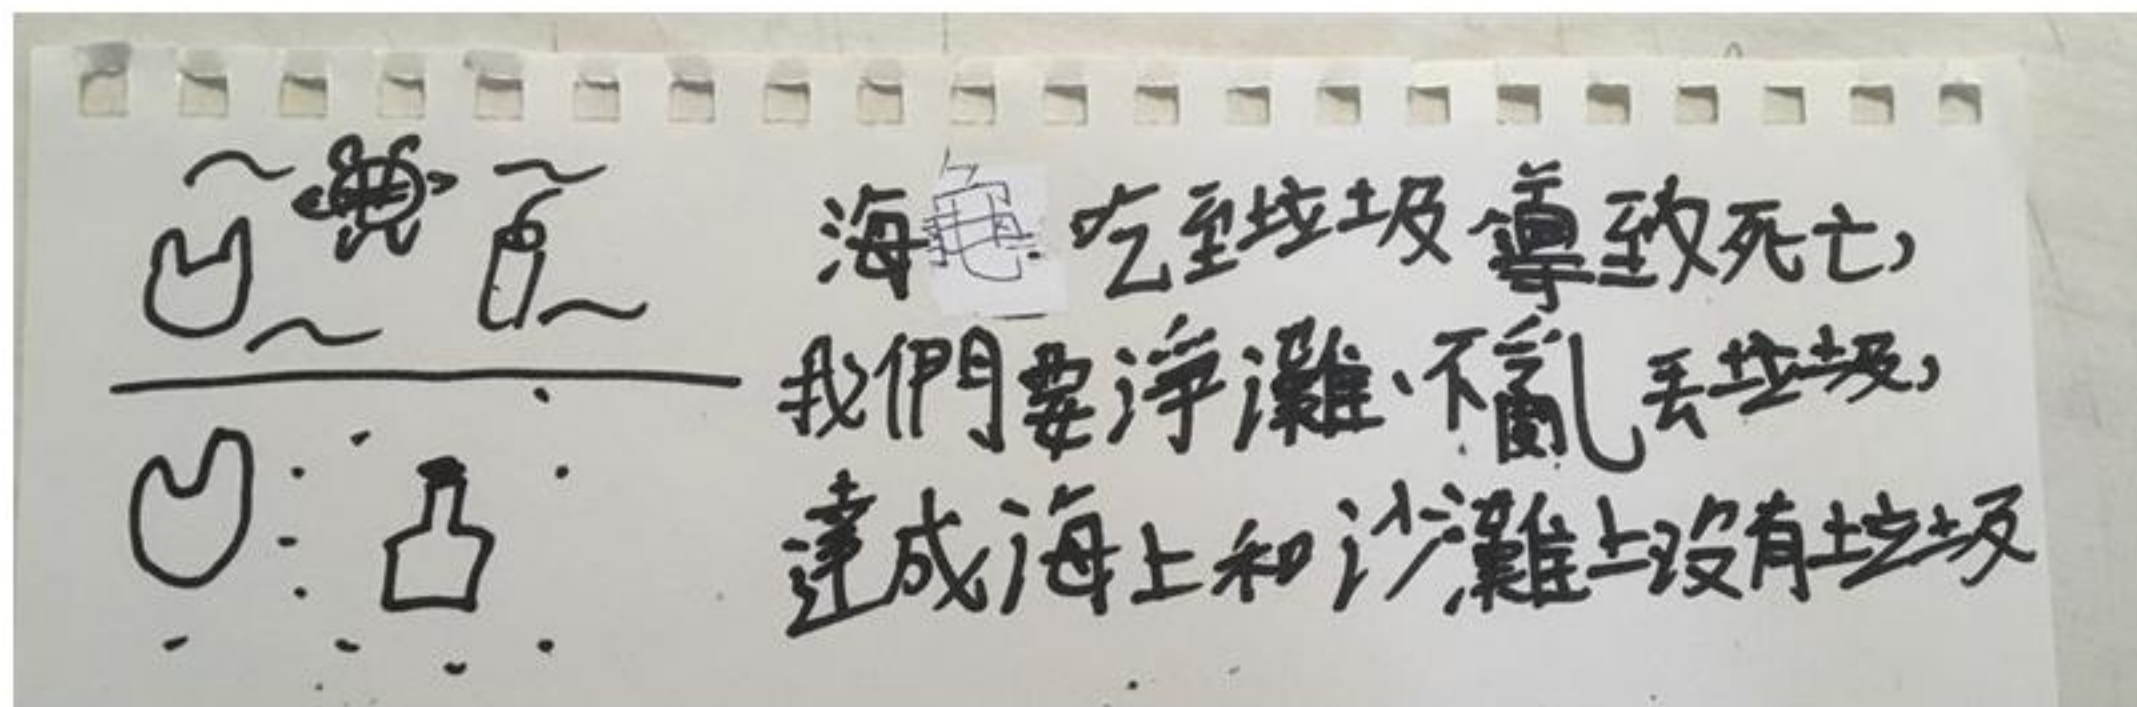 海龜吃到垃圾導致死亡,
我們要淨灘、不亂丟垃圾,
達成海上和沙灘上沒有垃圾